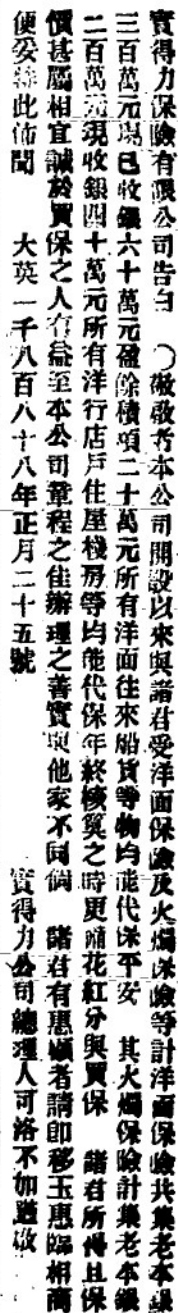 實得力保險有限公司告白　〇敬啟者本公司開設以來與諸君受洋面保險及火燭保險等計洋面保險共集老本銀
三百萬元現已收銀六十萬元盈餘積項二十萬元所有洋面往來船貨等物均能代保平安　其火燭保險計集老本銀
二百萬元現收銀四十萬元所有洋行店戶住屋棧房等均能代保年終核算之時更有花紅分與買保　諸君所得且保
價甚屬相宜誠於買保之人有益至本公司章程之佳辦理之善實與他家不同倘　諸君有惠顧者請即移玉惠臨相商
便妥特此佈聞　　大英一千八百八十八年正月二十五號　　實得力公司總理人可洛不如遜啟